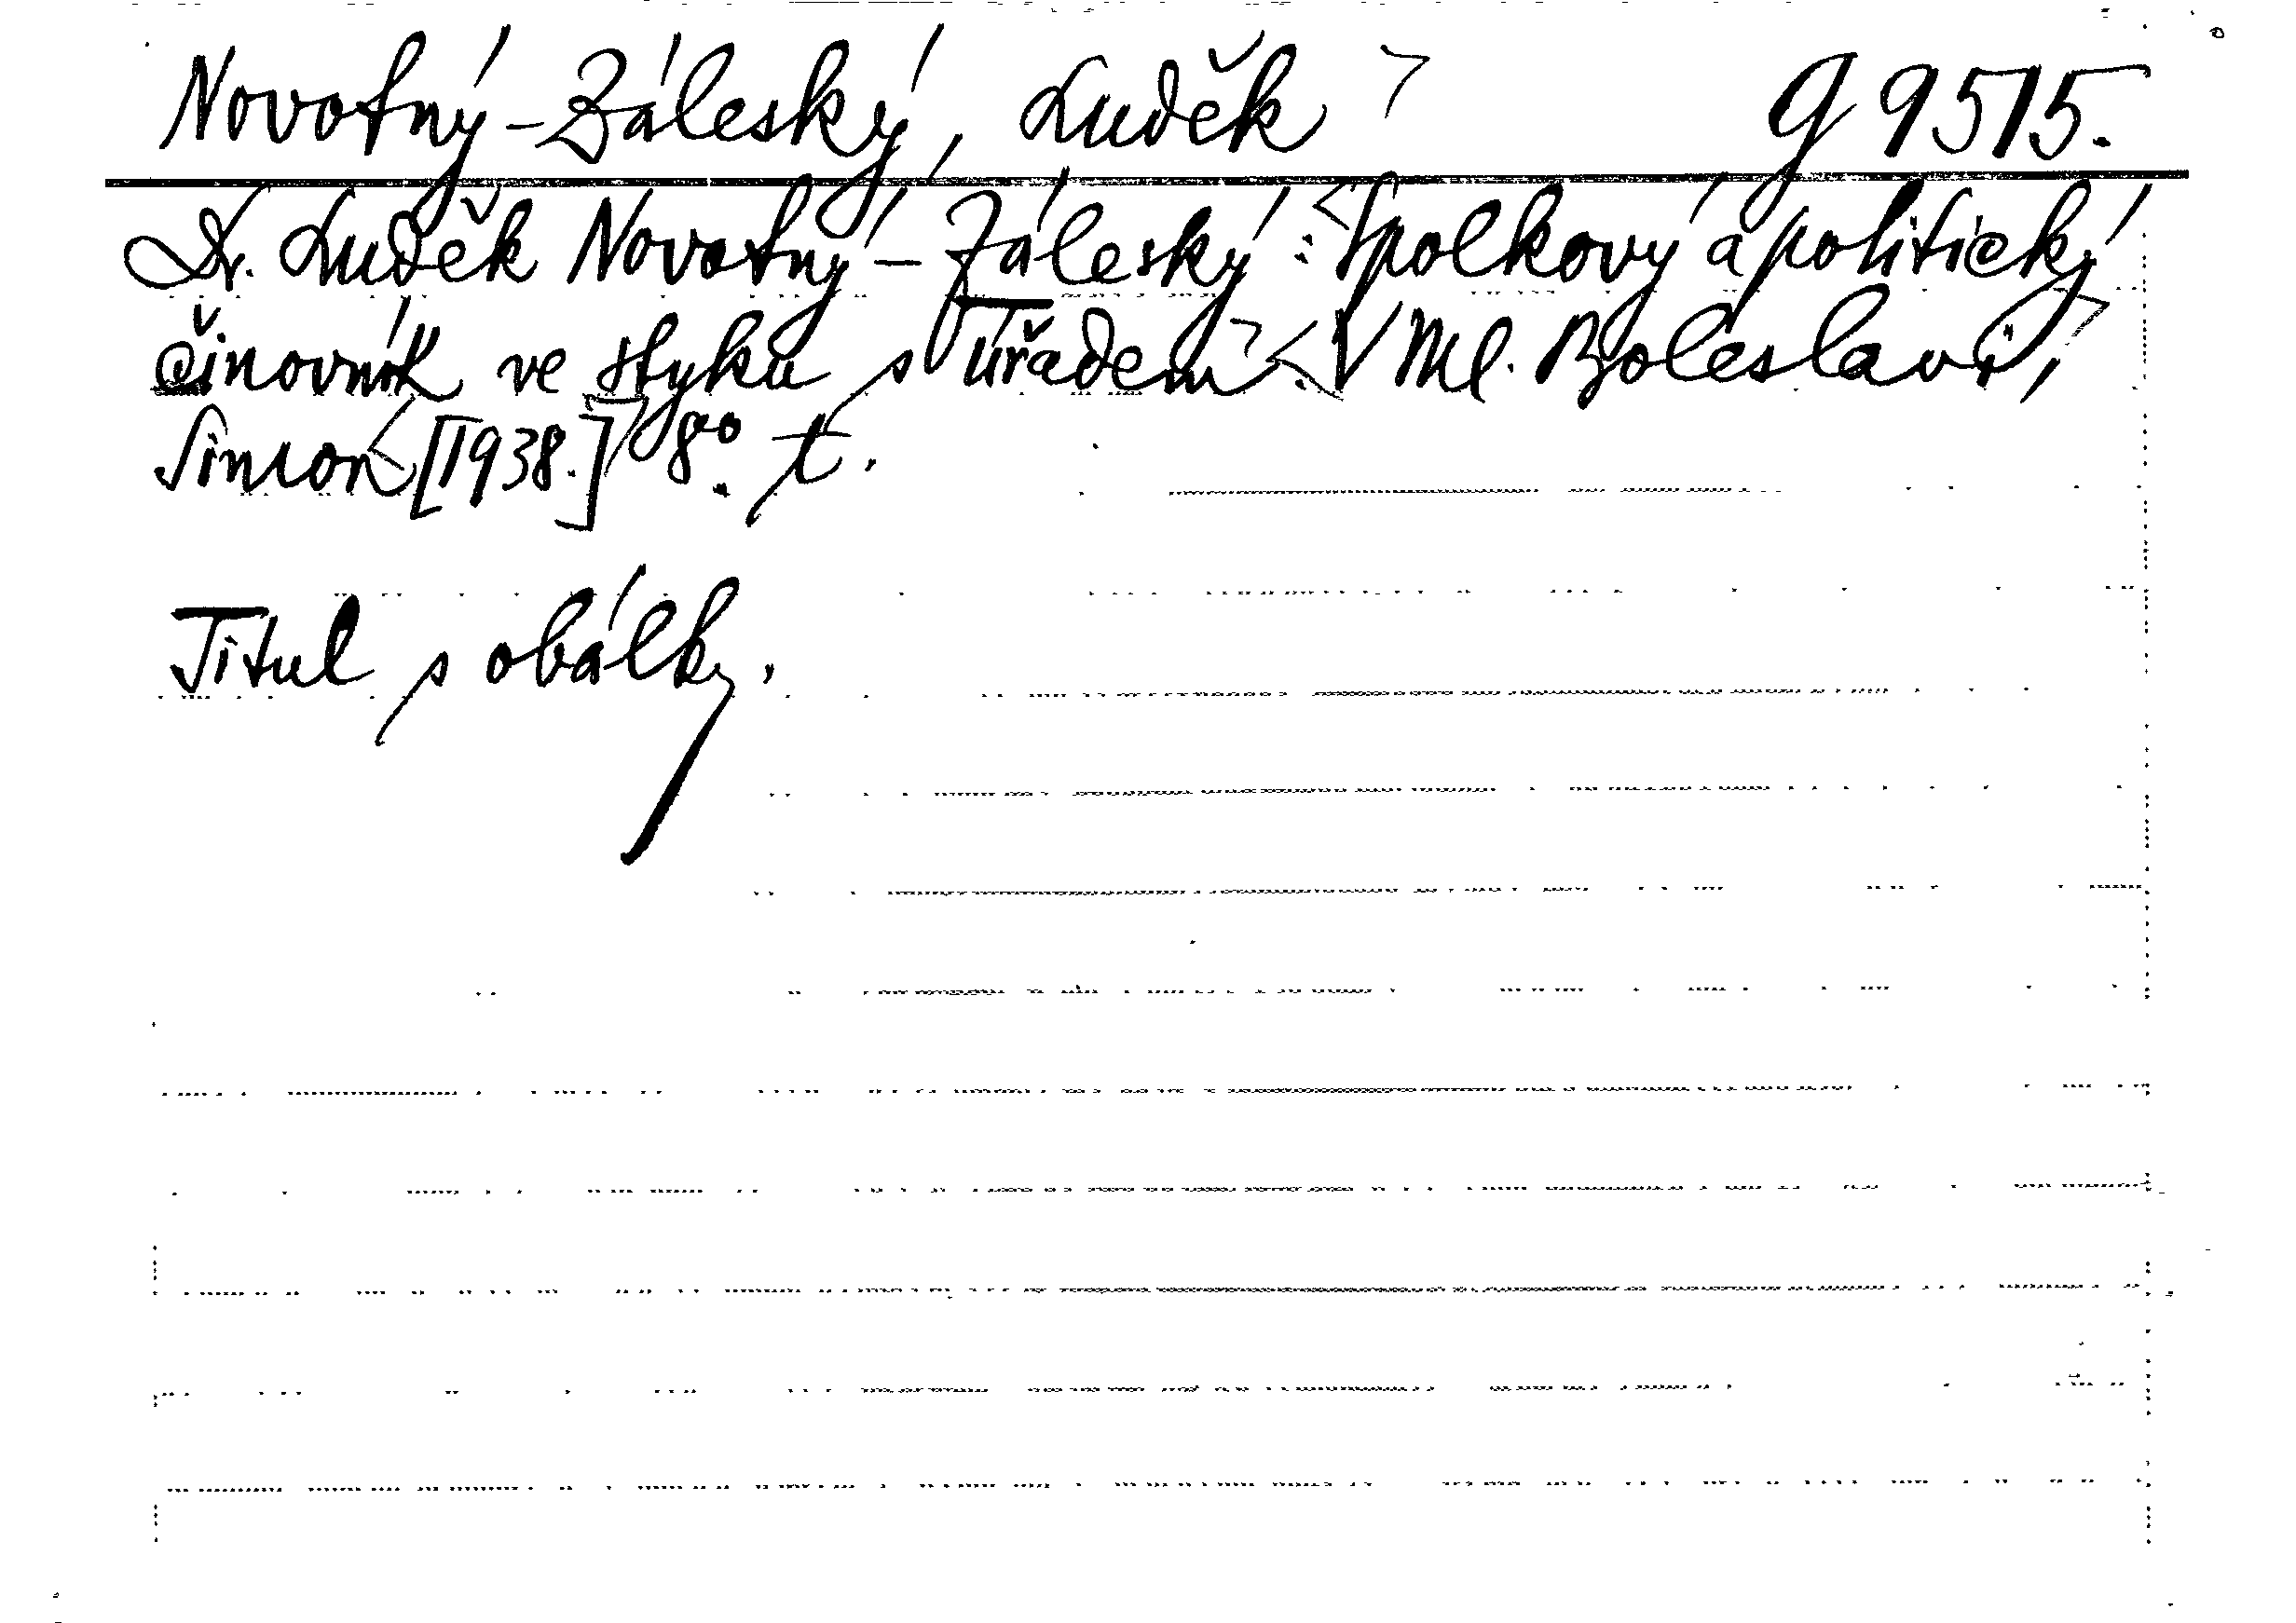 Novotný-Záleský, Luděk g 9515.
Dr. Luděk Novotný-Záleský: Spolkový a politický
činovník ve styku s úřadem. V Ml. Boleslavi,
Šimon [1938.] 8° t.
Titul s obálky.